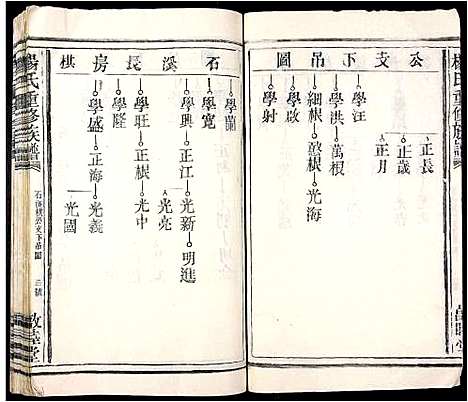 公支下吊圖
正長
正歲
正月
學汪
學洪 萬根
細根 鼓根 光海
學啟
學射
石溪長房棋
學韻
學寬
學興 正江 光新 明進
光亮
學旺 正根 光中
學隆
學盛 正海 光義
光國
楊氏重修族譜
敦睦堂
楊氏重修族譜